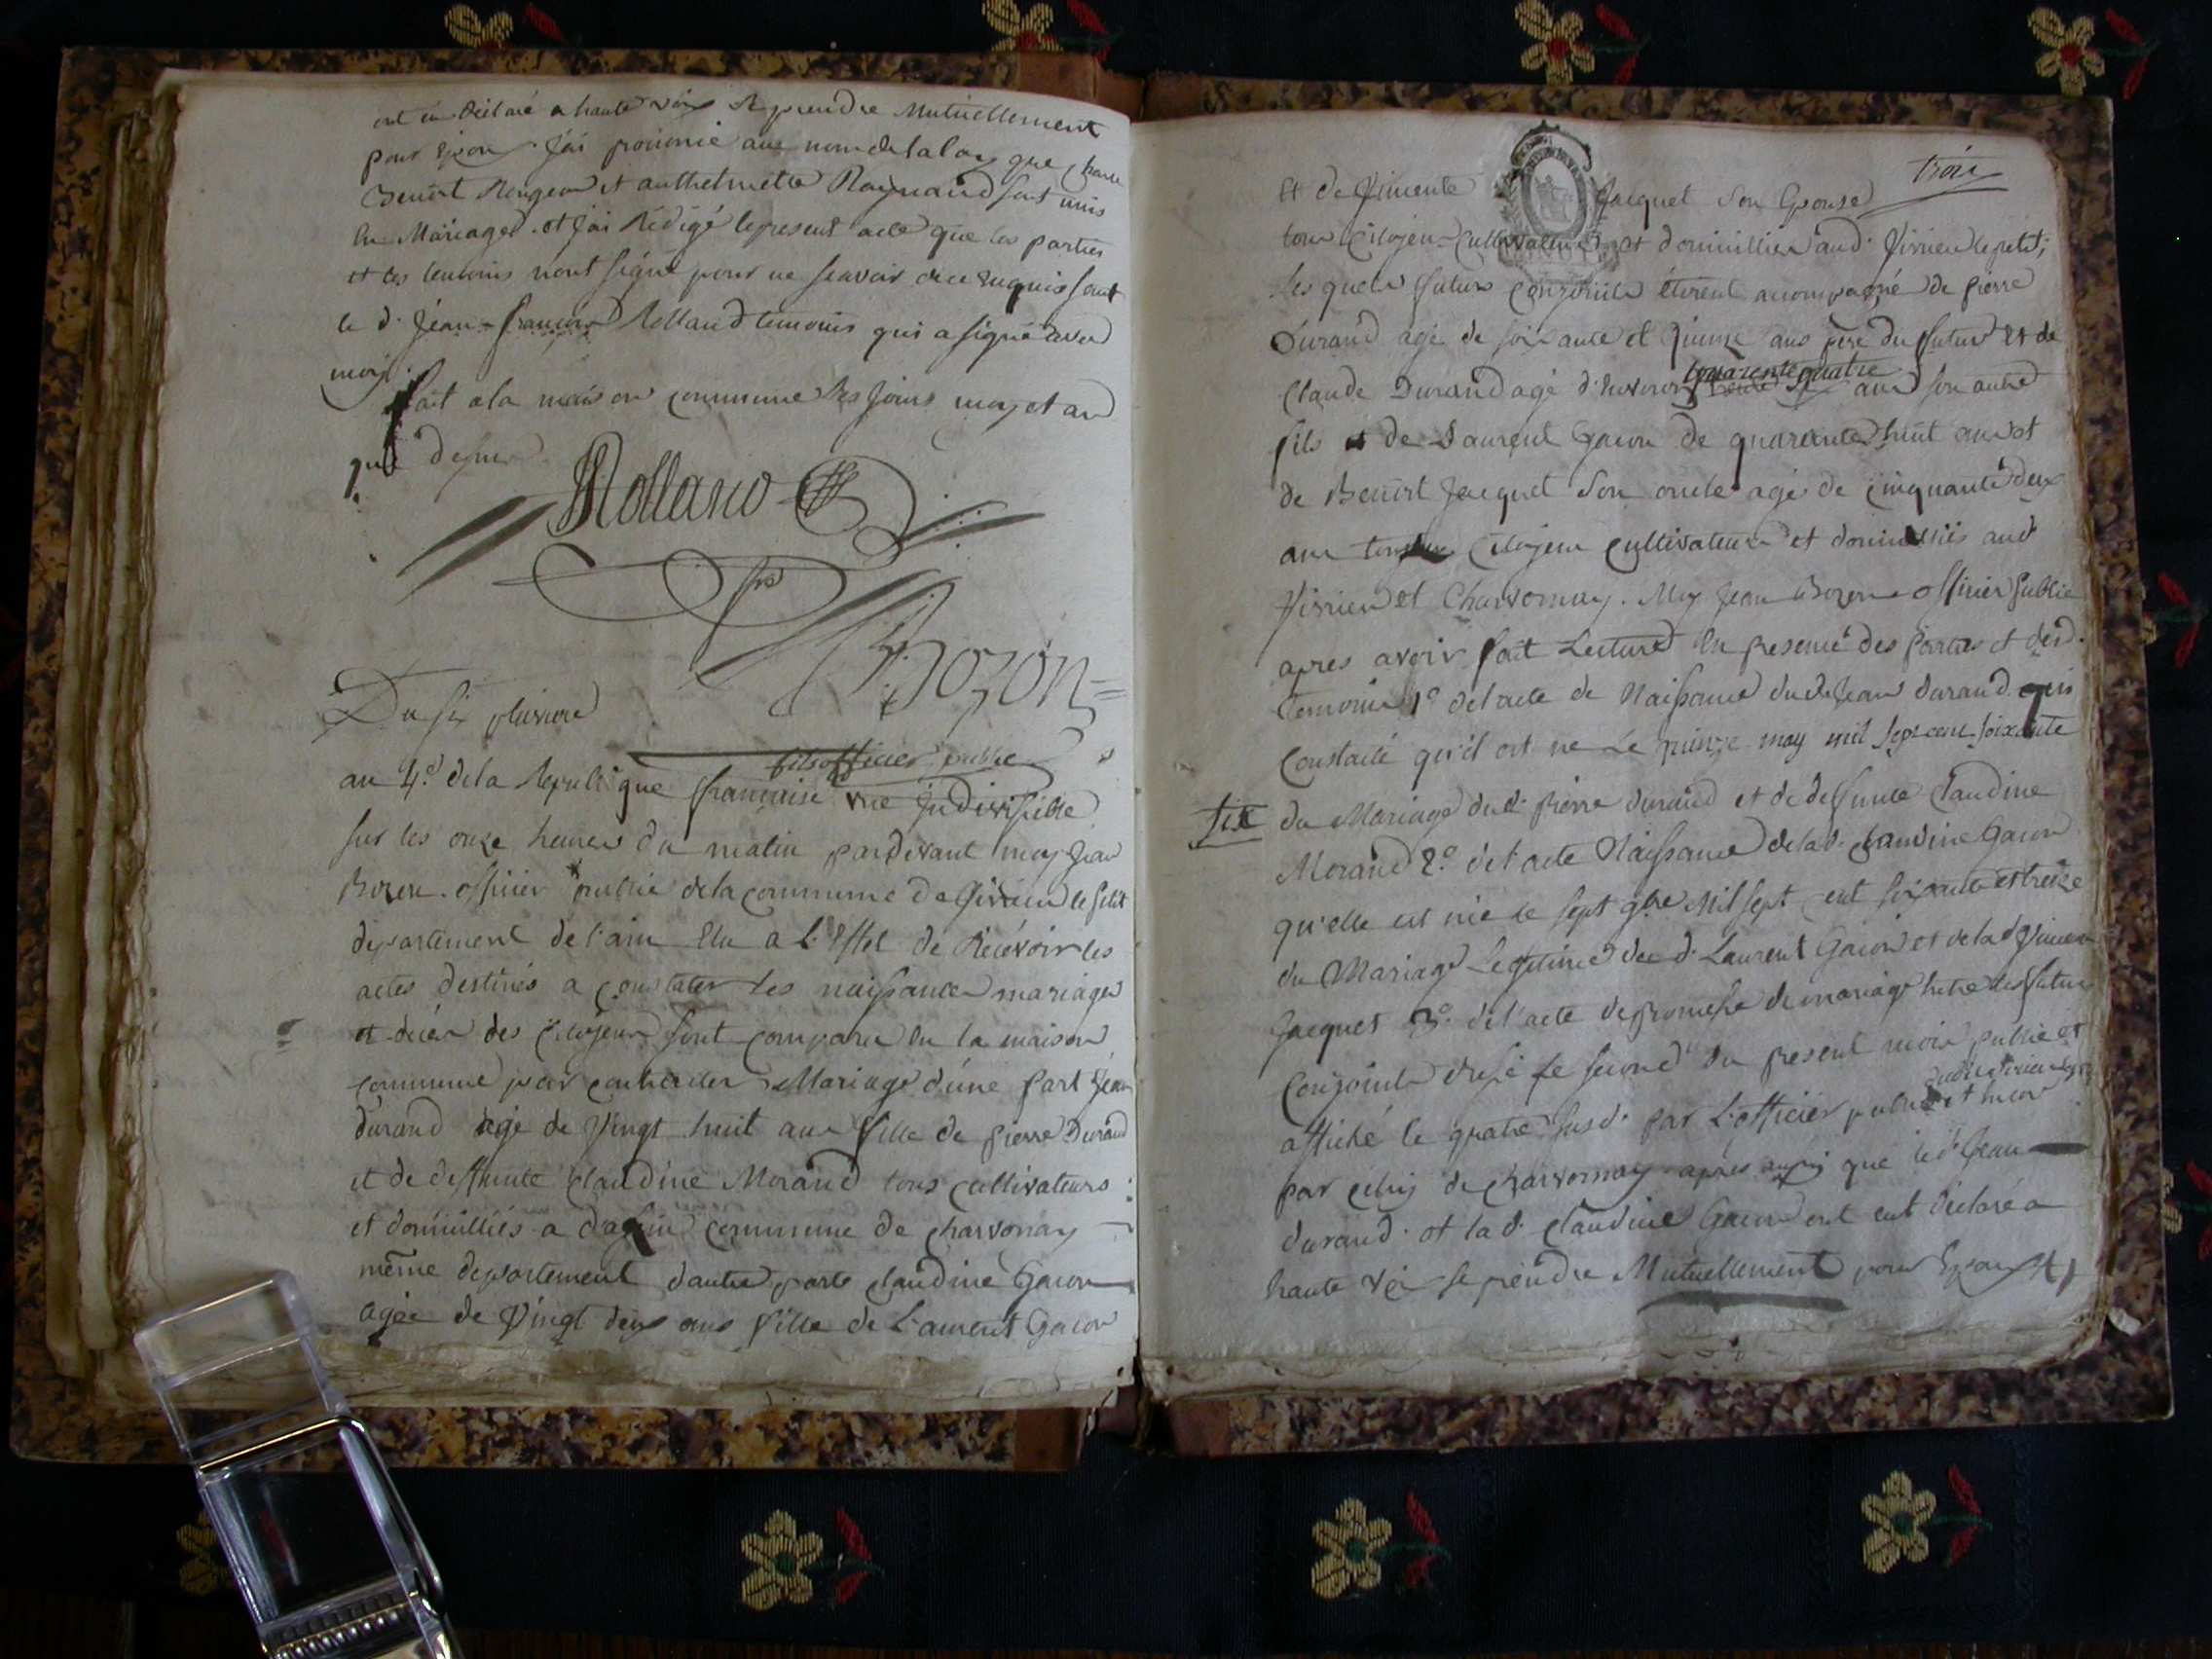 ont eu déclaré a haute voix se prendre Mutuellement
pour Epoux. J'ai prononcé au nom de la loy que
Benoît et anthelmette Raynaud sont unis
En Mariage. et J'ai Rédigé le present acte que les parties
et les temoins n'ont signé pour ne scavoir de ce requis sauf
le d. Jean-françois Rolland temoins qui a signé avec
moy.
fait a la maison commune les jours moy et an
que dessus
Rolland
Bozon
fils officier public
Du six pluviose
an 4.e de la Republique française une Indivisible
sur les onze heures du matin pardevant moy Jean
Bozon officier public de la commune de le petit
departement de l'ain Elu a L'Effet de Récévoir les
actes destinés a constater les naissances mariages
et décès des Citoyens sont comparu en la maison
commune pour contracter Mariage d'une part Jean
durand agé de Vingt huit ans fils de pierre Durand
et de deffunte Claudine Morand tous cultivateurs
et domicilliés a commune de Charvonay
même departement d'autre parte Claudine Gacon
agée de Vingt deux ans fille de Laurent Gacon
trois
Et de Jacquet son Epouse
tous Citoyens Cultivateurs et domicilliés aud. le petit;
Les quels futurs conjoints étoient accompagné de pierre
Durand agé de soixante et quinze ans père du futur et de
quarante quatre
Claude Durand agé d'environ ans son autre
fils et de Laurent Gacon de quarante huit ans et
de Benoît Jacquet son oncle agé de cinquante deux
ans tous Citoyens cultivateurs et domiciliés aud
et Charvonnay. Moy Jean Bozon officier public
apres avoir fait Lecture En presence des parties et desd.
temoins 1.o de l'acte de Naissance dud. Jean durand qui
constate qu'il est né Le quinze may mil sept cent soixante
six du Mariage dud. pierre durand et de deffunte Claudine
Morand 2.o de l'acte Naissance de lad. Claudine Gacon
qu'elle est née le sept 9bre Mil sept cent soixante et treize
du Mariage Legitime du d. Laurent Gacon et de lad.
Jacquet 3.o de l'acte de promesse de mariage Entre les futurs
Conjoints le second du present mois publié et
affiché le quatre susd. par L'officier public et Encor
par celuy de Charvonnay apres aussy que led. Jean
durand. et lad. Claudine Gacon ont eut déclaré a
haute voix se prendre Mutuellement pour Epoux